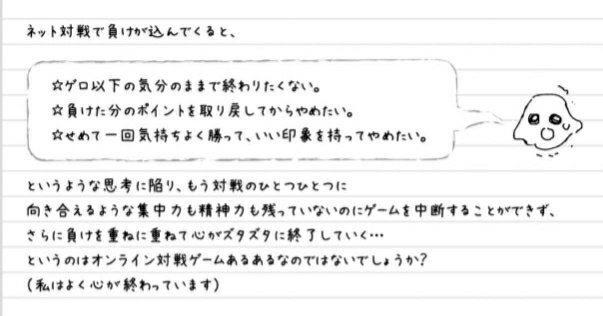 ネット対戦で負けが込んでくると、
☆ゲロ以下の気分のままで終わりたくない。
☆負けた分のポイントを取り戻してからやめたい。
☆せめて一回気持ちよく勝って、いい印象を持ってやめたい。
というような思考に陥り、もう対戦のひとつひとつに
向き合えるような集中力も精神力も残っていないのにゲームを中断することができず、
さらに負けを重ねに重ねて心がズタズタに終了していく…
というのはオンライン対戦ゲームあるあるなのではないでしょうか?
(私はよく心が終わっています)